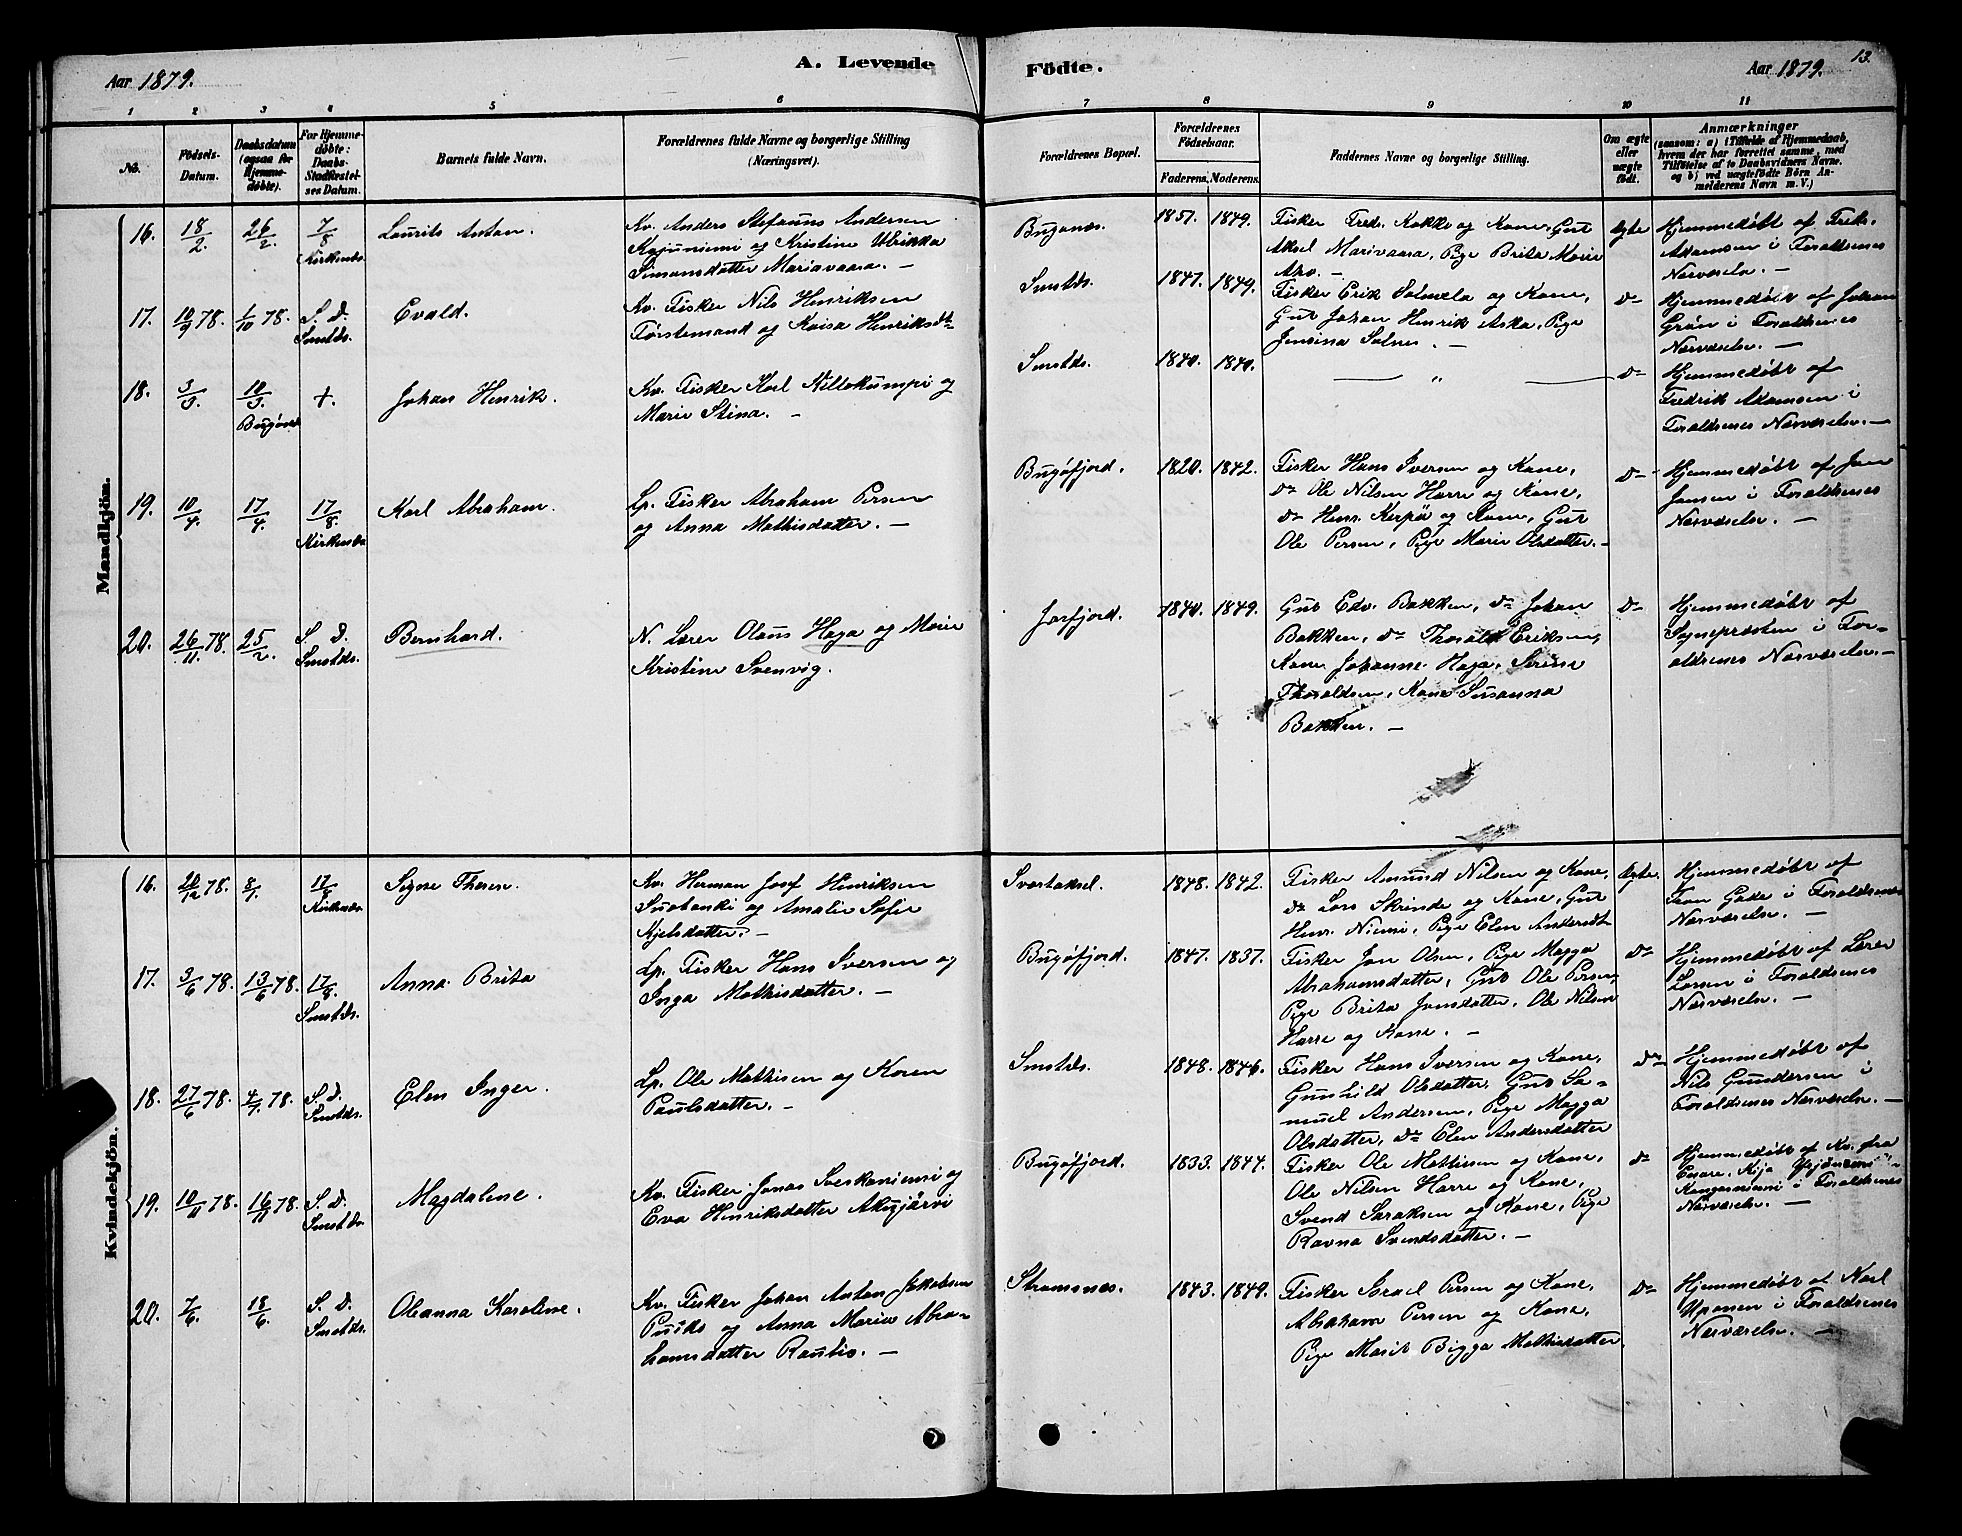 A. Levende
Aar 1879.
1 2 3 4 5 6
No.
Födsels-Datum.
Daabsdatum (ogsaa for Hjemmedøbte).
For Hjemmedøbte: Daabs-Stadfæstelses Datum.
Barnets fulde Navn.
Forældrenes fulde Navne og borgerlige Stilling (Næringsvei).
Mandkjön.
16. 18/2 26/2 7/8 Kirkenæs. Laurits Anton. Kv. Anders Stefanus Andersen
Kajuniemi og Kristine Ulrikka
Simonsdatter Mariavaara. —
17. 10/9 78. 1/10 78. S. D. Smstds. Evald. Kv. Fisker Nils Henriksen
Førstemand og Kaisa Henriksdt-
18. 3/3 10/3. Bugönæs +. Johan Henrik. Kv. Fisker Karl Killekumpi og
Marie Stina. —
19. 10/4. 17/4. 17/8. Kirkenæs Karl Abraham. Lp. Fisker Abraham Persen
og Anna Mathisdatter. —
20. 26/11. 78. 25/2. S. D. Smstds. Bernhard. N. Lærer Olaus Haga og Marie
Kristine Svenvig.
Kvindekjön.
16. 20/12 78. 8/1. 17/8 Kirkenæs. Signe Therese. Kv. Herman Josef Henriksen
Suobanki og Amalie Sofie
Kjelsdatter. —
17. 3/6 78. 13/6 78. 17/8. Smstds. Anna Brita Lp. Fisker Hans Iversen og
Inga Mathisdatter. —
18. 27/6 78. 4/7 78. S. D. Smstds. Elen Inger. Lp. Ole Mathisen og Karen
Paulsdatter. —
19. 10/11 78. 16/11 78. S. D. Smstds. Magdalene. Kv. Fisker Jonas Sveskaniemi og
Eva Henriksdatter Akujärvi
20. 7/6. 18/6. S. D. Smstds. Oleanna Karoline. Kv. Fisker Johan Anton Jakobsen
og Anna Maria Abra-
hamsdatter Rautio. —
Födte.
Aar 1879.
13.
7 8 9 10 11
Forældrenes Bopæl.
Forældrenes Födselsaar.
Faderens. Moderens.
Faddernes Navne og borgerlige Stilling.
Om ægte eller uægte født.
Anmærkninger
(saasom: a) i Tilfælde af Hjemmedaab,
hvem der har forrettet samme, med
Tilføielse af to Daabsvidners Navne,
og b) ved uægtefødte Børn An-
melderens Navn m. V.)
Bugönæs. 1851. 1849. Fisker Fredr. Kokko og Kone, Gut
Aksel Marivaara, Pige Brita Marie
Aho. —
Ægte Hjemmedøbt af Fredr.
Adamsen i Forældrenes
Nærværelse. —
Smstds. 1847. 1849. Fisker Erik Salmela og Kone,
Gut Johan Henrik Aska, Pige
Jensina Salmes. —
do Hjemmedøbt af Johan
Grön i Forældrenes
Nærværelse. —
Smstds. 1840. 1840. — „ — do Hjemmedøbt af
Fredrik Adamsen i
Forældrenes Nærværelse. —
Bugöfjord. 1820. 1842. Fisker Hans Iversen og Kone,
do Ole Nilsen Harre og Kone,
do Henr. Kerpä og Kone, Gut
Ole Persen, Pige Marie Olsdatter. —
do Hjemmedøbt af Jon
Jonsen i Forældrenes
Nærværelse. —
Jarfjord. 1840. 1849. Gut Edv. Bakken, do Johan
Bakken, do Thorald Eriksen,
Kone Johanne Haga, Serine
Thoraldsen, Kone Susanna
Bakken. —
do Hjemmedøbt af
Sognepræsten i For-
ældrenes Nærværelse. —
Svartaksel. 1848. 1842. Fisker Amund Nilsen og Kone,
do Lars Skrinde og Kone, Gut
Henr. Niemi, Pige Elen Andersdt
Ægte. Hjemmedøbt af
Gade i Forældrenes
Nærværelse. —
Bugöfjord. 1847. 1837. Fisker Jon Olsen, Pige Magga
Abrahamsdatter, Gut Ole Persen,
Pige Brita Jonsdatter, Ole Nilsen
Harre og Kone. —
do Hjemmedøbt af Lærer
Larsen i Forældrenes
Nærværelse. —
Smstds. 1848. 1846. Fisker Hans Iversen og Kone,
Gunhild Olsdatter, Gut Sa-
muel Andersen, Pige Magga
Olsdatter, do Elen Andersdatter
do Hjemmedøbt af
Nils Gundersen i
Forældrenes Nærværelse. —
Bugöfjord. 1833. 1844. Fisker Ole Mathisen og Kone,
Ole Nilsen Harre og Kone,
Svend Saraksen og Kone, Pige
Ravna Svendsdatter. —
do Hjemmedøbt af Kv. fra
Enare,
Kangasniemi i Forældrenes
Nærværelse. —
Strømsnæs. 1843. 1849. Fisker Israel Persen og Kone,
Abraham Persen og Kone,
Pige Marit Bigga Mathisdatter.
do Hjemmedøbt af Karl
Uponen i Forældrenes
Nærværelse. —